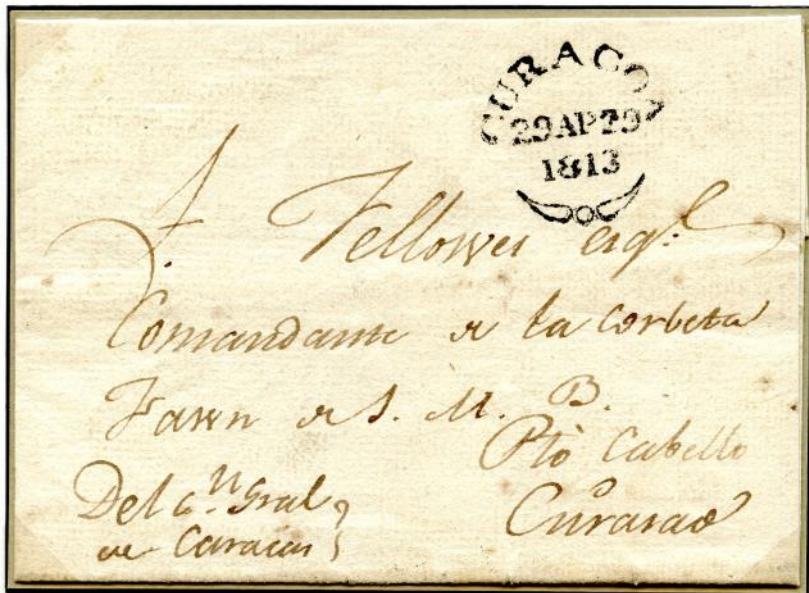 CURACOA
29AP29
1813
T. Fellowes esqe.
Comandante de la Corbeta
Fawn de S. M. B.
Pto Cabello
Curacao
Del Gral
de Caracas